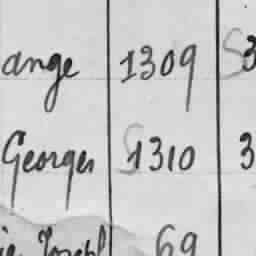 ange 1309 3
Georges 1310 3
Joseph 69